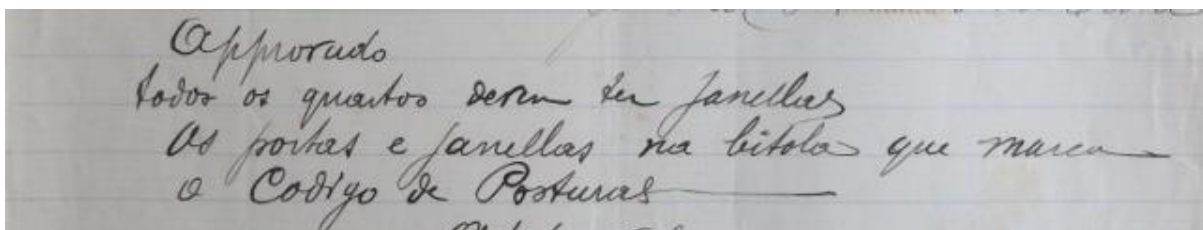 Approvado
todos os quartos devem ter janellas
As portas e janellas na bitola que marca
o Codigo de Posturas